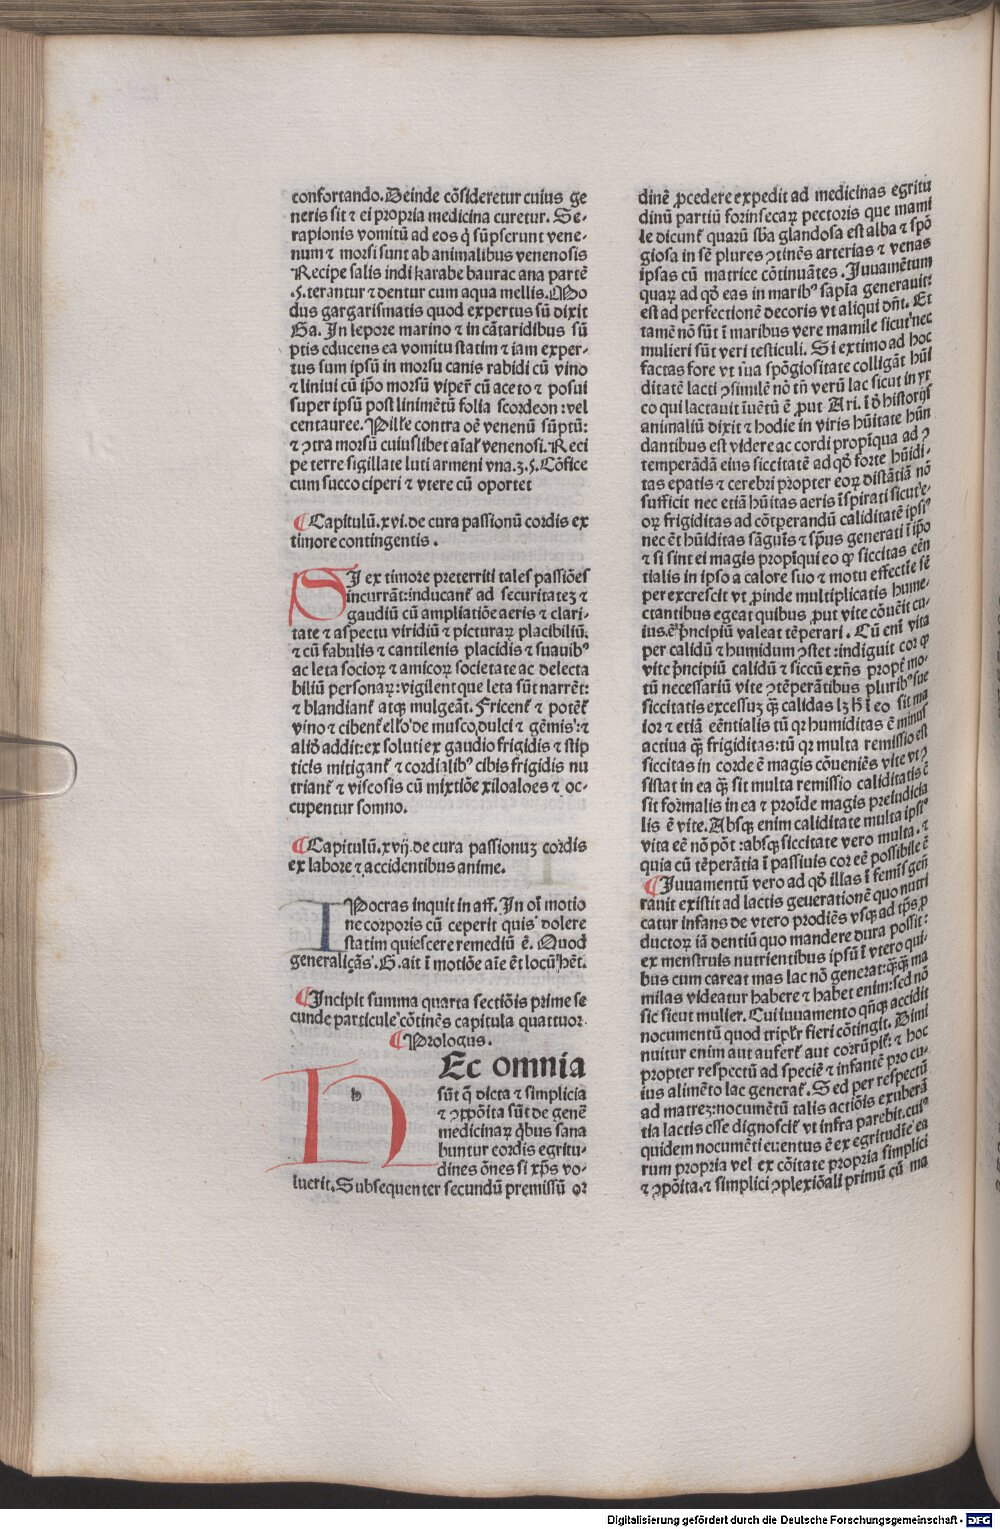 confortando. Deinde cõsideretur cuius ge
neris sit ⁊ ei propria medicina curetur. Se-
rapionis vomitũ ad eos q̃ sũpserunt vene-
num ⁊ morsi sunt ab animalibus venenosis
Recipe salis indi karabe baurac ana partẽ
.5. terantur ⁊ dentur cum aqua mellis. Mo
dus gargarismatis quod expertus sũ dixit
Ga. In lepore marino ⁊ in cãtaridibus sũ
ptis educens ea vomitu statim ⁊ iam exper-
tus sum ipsũ in morsu canis rabidi cũ vino
⁊ liniui cũ ip̃o morsũ viperꝭ cũ aceto ⁊ posui
super ipsũ post linimẽtũ folia scordeon: vel
centauree. Pillꝭe contra oẽ venenũ sũptũ:
⁊ ꝯtra morsũ cuiuslibet aĩalꝭ venenosi. Reci
pe terre sigillate luti armeni vna.ʒ.5. Cõfice
cum succo ciperi ⁊ vtere cũ oportet
¶Capitulũ.xvi.de cura passionũ cordis ex
timore contingentis.
SI ex timore preterriti tales passiões
incurrãt: inducantꝭ ad securitateʒ ⁊
gaudiũ cũ ampliatiõe aeris ⁊ clari-
tate ⁊ aspectu viridiũ ⁊ picturaꝝ placibiliũ:
⁊ cũ fabulis ⁊ cantilenis placidis ⁊ suauibꝰ
ac leta socioꝝ ⁊ amicoꝝ societate ac delecta
biliũ personaꝝ: vigilent que leta sũt narrẽt:
⁊ blandiantꝭ atqꝫ mulgeãt. Fricentꝭ ⁊ potẽtꝭ
vino ⁊ cibentꝭ ellꝭo de musco dulci ⁊ gẽmis: ⁊
aliõ addit: ex soluti ex gaudio frigidis ⁊ stip
ticis mitigantꝭ ⁊ cordialibꝰ cibis frigidis nu
triantꝭ ⁊ viscosis cũ mixtiõe xiloaloes ⁊ oc-
cupentur somno.
¶Capitulũ.xvij.de cura passionuʒ cordis
ex labore ⁊ accidentibus anime.
IPocras inquit in aff. In oĩ motio
ne corporis cũ ceperit quis dolere
statim quiescere remediũ ẽ. Quod
generaliçãs. G. ait ĩ motiõe aĩe ẽt locũ hẽt.
¶Incipit summa quarta sectiõis prime se
cunde particule cõtinẽs capitula quattuor.
¶Prologus.
h
HEc omnia
sũt q̃ dicta ⁊ simplicia
⁊ ꝯpõita sũt de genẽ
medicinaꝝ q̃bus sana
buntur cordis egritu-
dines õnes si xp̃s vo-
luerit. Subsequenter secundũ premissũ oꝛ
dinẽ ꝓcedere expedit ad medicinas egritu
dinũ partiũ forinsecaꝝ pectoris que mami
le dicuntꝭ quarũ sb̃a glandosa est alba ⁊ spõ
giosa in sẽ plures ꝯtinẽs arterias ⁊ venas
ipsas cũ matrice cõtinuãtes. Iuuamẽtum
quaꝝ ad qd̃ eas in maribꝰ sapĩa generauit:
est ad perfectionẽ decoris vt aliqui dñt. Et
tamẽ nõ sũt ĩ maribus vere mamile sicut nec
mulieri sũt veri testiculi. Si extimo ad hoc
factas fore vt ĩ sua spõgiositate colligãt hũi
ditatẽ lacti ꝯsimilẽ nõ tñ verũ lac sicut in yr
co qui lactauit ĩuẽtũ ẽ ꝓut Ari. ĩ õ historijs
animaliũ dixit ⁊ hodie in viris hũitate hũn
dantibus est videre ac cordi propĩqua ad ꝯ
temperãdã eius siccitatẽ ad qd̃ forte hũidi-
tas epatis ⁊ cerebri propter eoꝝ distãtiã nõ
sufficit nec etiã hũitas aeris ĩspirati sicut e-
oꝝ frigiditas ad cõtperandũ caliditatẽ ipsiꝰ
nec ẽt hũiditas sãguĩs ⁊ sp̃us generati ĩ ip̃o
⁊ si sint ei magis propĩqui eo qꝫ siccitas eẽn
tialis in ipso a calore suo ⁊ motu effectiẽ sẽ
per excrescit vt ꝓinde multiplicatis hume-
ctantibus egeat quibus ꝓut vite cõuẽit cu-
ius.ẽ p̃ncipiũ valeat tẽperari. Cũ enĩ vita
per calidũ ⁊ humidum ꝯstet: indiguit coꝛ qꝫ
vite p̃ncipiũ calidũ ⁊ siccũ exñs propt̃ mo-
tũ necessariũ vite ꝯtẽperãtibus pluribꝰ sue
siccitatis excessuʒ qꝫ̃ calidas lʒ h̃ ĩ eo sit ma
ior ⁊ etiã eẽntialis tũ qꝛ humiditas ẽ minus
actiua qꝫ̃ frigiditas: tũ qꝛ multa remissio est
siccitas in corde ẽ magis cõueniẽs vite vt ꝯ
sistat in ea qꝫ̃ sit multa remissio caliditatis ẽ
sit formalis in ea ⁊ proĩde magis preiudicia
lis ẽ vite. Absqꝫ enim caliditate multa ipsiꝰ
vita eẽ nõ põt: absqꝫ siccitate vero multa. ⁊
quia cũ tẽperãtia ĩ passiuis cor eẽ possibile ẽ
¶Iuuamentũ vero ad qd̃ illas ĩ femis geñ
rauit existit ad lactis geuerationẽ quo nutri
catur infans de vtero prodiẽs vsqꝫ ad tp̃s ꝓ
ductoꝝ iã dentiũ quo mandere dura possit:
ex menstruis nutrientibus ipsũ ĩ vtero qui-
bus cum careat mas lac nõ generat: qꝫ̃qꝫ̃ ma
milas videatur habere ⁊ habet enim: sed nõ
sic sicut mulier. Cui iuuamento qñqꝫ accidit
nocumentũ quod triplꝭr fieri cõtingit. Dimi
nuitur enim aut aufertꝭ aut corrũpitꝭ: ⁊ hoc
propter respectũ ad speciẽ ⁊ infantẽ pro cu-
ius alimẽto lac generatꝭ. Sed per respectũ
ad matreʒ: nocumẽtũ talis actiõis exuberã
tia lactis esse dignoscitꝭ vt infra parebit. cuiꝰ
quidem nocumẽti euentus ẽ ex egritudiẽ ea
rum propria vel ex cõitate propria simplici
⁊ ꝯpõita. ⁊ simplici ꝯplexiõali primũ cũ ma
Digitalisierung gefördert durch die Deutsche Forschungsgemeinschaft - DFG